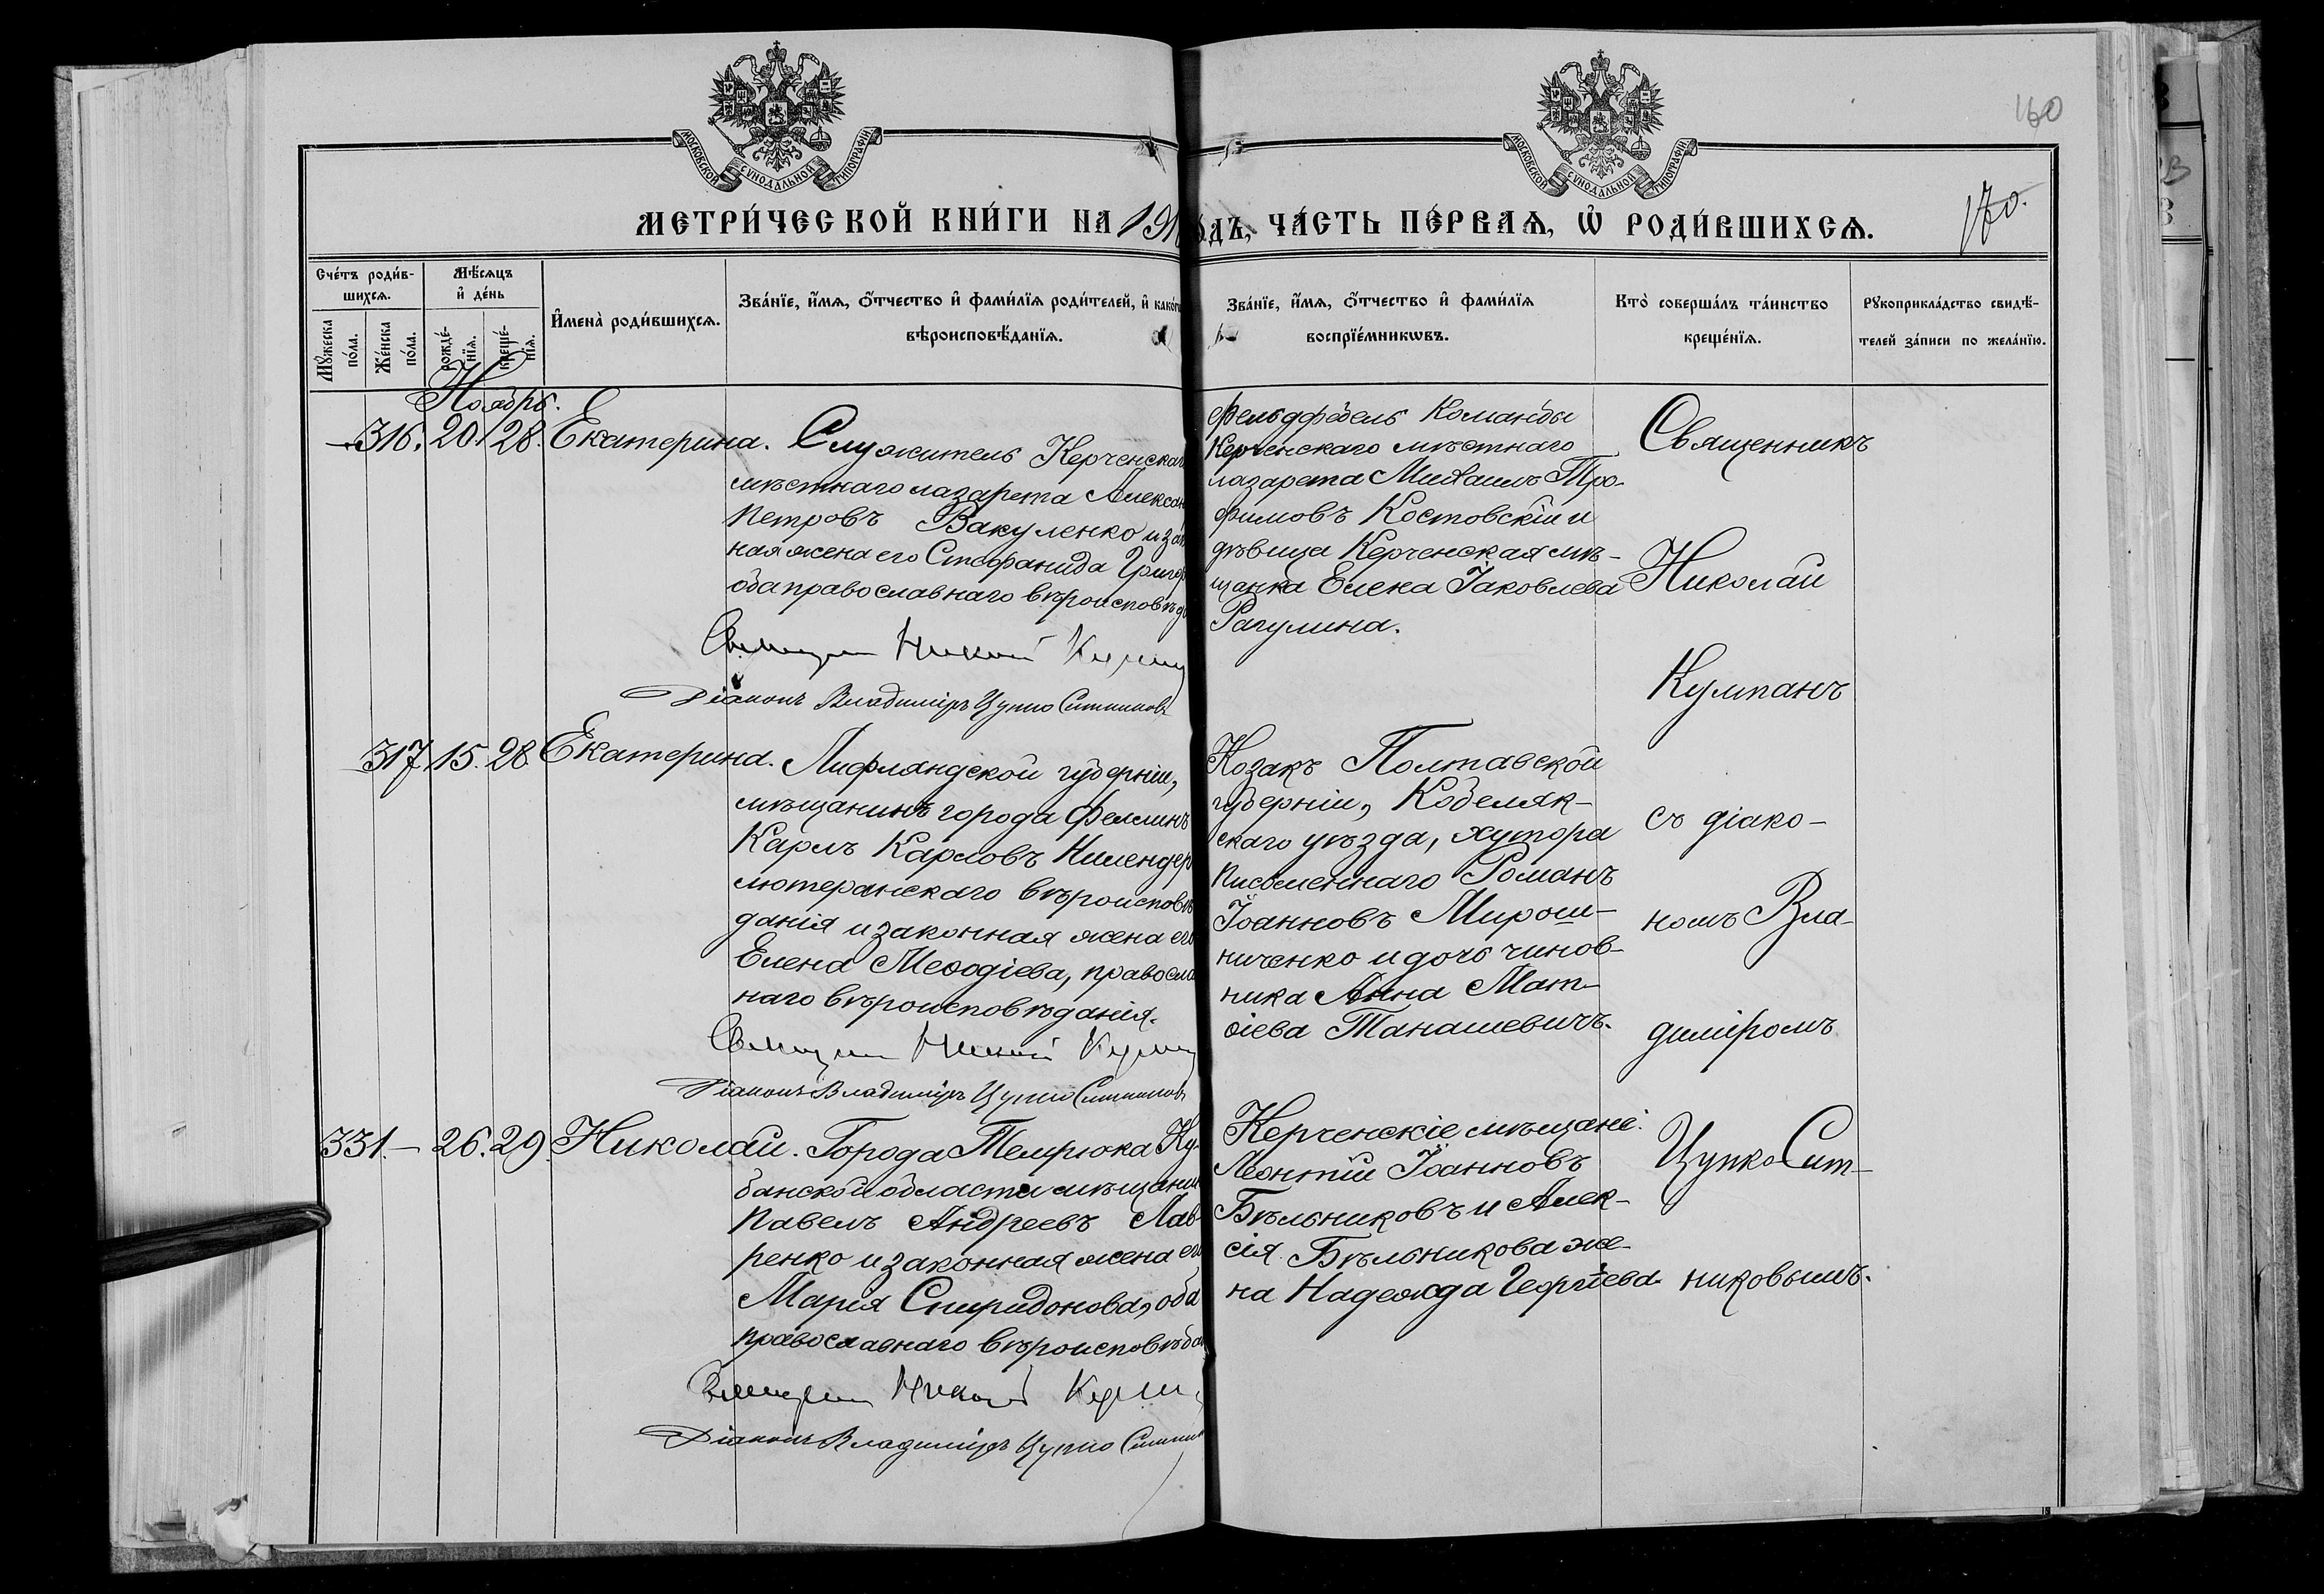 160
МОСКОВСКОЙ СУНОДАЛЬНОЙ ТИПОГРАФІИ
МОСКОВСКОЙ СУНОДАЛЬНОЙ ТИПОГРАФІИ
МЕТРИ́ЧЕСКОЙ КНИ́ГИ НА 191
ЧА́СТЬ ПЕ́РВАѦ, Ѡ҆ РОДИ́ВШИХСѦ.
Сче́тъ роди́в-
шихсѧ.
Мꙋ́жеска
по́ла.
Же́нска
по́ла.
Мѣ́сѧцъ
и҆ де́нь
рожде́-
нїѧ.
креще́-
нїѧ.
И҆мена̀ роди́вшихсѧ.
Зва́нїе, и҆́мѧ, ѻ҆́тчество и҆ фами́лїѧ роди́телей, и҆ како́гѡ
вѣроисповѣ́данїѧ.
Зва́нїе, и҆́мѧ, ѻ҆́тчество и҆ фами́лїѧ
воспрїе́мникѡвъ.
Кто̀ соверша́лъ та́инство
креще́нїѧ.
Рꙋкоприкла́дство свидѣ́-
телей за́писи по жела́нїю.
Ноябрь.
316. 20. 28. Екатерина.
Служитель Керченскаг
мѣстнаго лазарета Алексан
Петровъ Вакуленко и зак
ная жена его Стефанида Григор
оба православнаго вѣроисповѣд
Священникъ Николай
Діаконъ Владиміръ Цупко Ситников
Фельдфебель Команды
Керченскаго мѣстнаго
лазарета Михаилъ Тро-
фимовъ Костовскій и
дѣвица Керченская мѣ-
щанка Елена Іаковлева
Рагулина.
317. 15. 28. Екатерина.
Лифляндской губерніи,
мѣщанинъ города Феллинъ
Карлъ Карловъ Нилендер
лютеранскаго вѣроисповѣ
данія и законная жена его
Елена Меѳодіева, правосла
наго вѣроисповѣданія.
Священникъ Николай
Діаконъ Владиміръ Цупко Ситников
Козакъ Полтавской
губерніи, Кобеляк-
скаго уѣзда, хутора
Письменнаго Романъ
Іоанновъ Мирош-
ниченко и дочь чинов-
ника Анна Мат-
ѳіева Танашевичъ.
331. — 26. 29. Николай.
Города Темрюка Ку-
банской области мѣщанин
Павелъ Андреевъ Лав-
ренко и законная жена его
Марія Спиридонова, оба
православнаго вѣроисповѣдан
Священникъ Николай
Діаконъ Владиміръ Цупко Ситник
Керченскіе мѣщане:
Леонтій Іоанновъ
Бѣльниковъ и Алек-
сія Бѣльникова же-
на Надежда Георгіева.
Священникъ
Николай
Кулпанъ
съ діако-
номъ Вла-
диміромъ
Цупко Сит-
никовымъ.